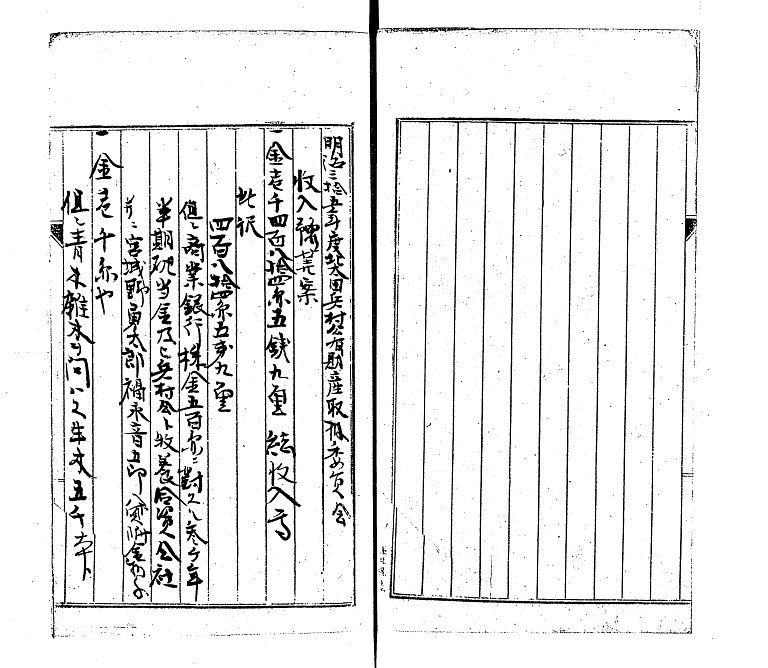 明治三拾五年度柴田兵村公有財産取扱委員会
収入豫算案
一金壱千四百八拾四円五銭九厘 総収入高
此訳
四百八拾四円五銭九厘
但シ商業銀行株金五百円ニ対スル参十年
半期配当金及ヒ兵村公ト牧養合資会社
并ニ宮城野勇太郎福永音五郎ヘ貸附金利子
一金壱千円也
但シ青木雑木ヲ問ハス生木五千本ト